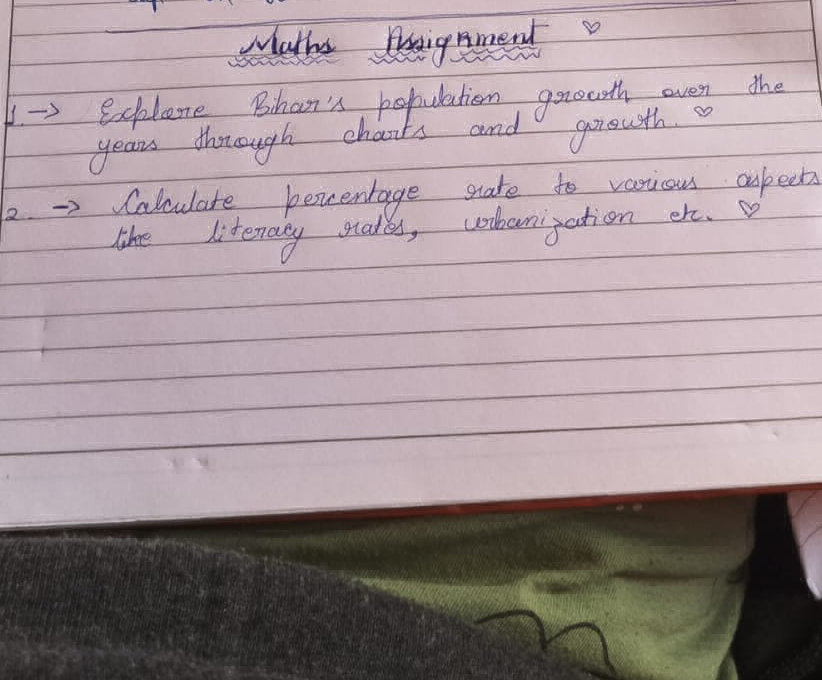 Maths Assignment ♡
1. → Explore Bihar's population growth over the
years through charts and growth. ♡
2. → Calculate percentage rate to various aspects
like literacy rates, urbanization etc. ♡